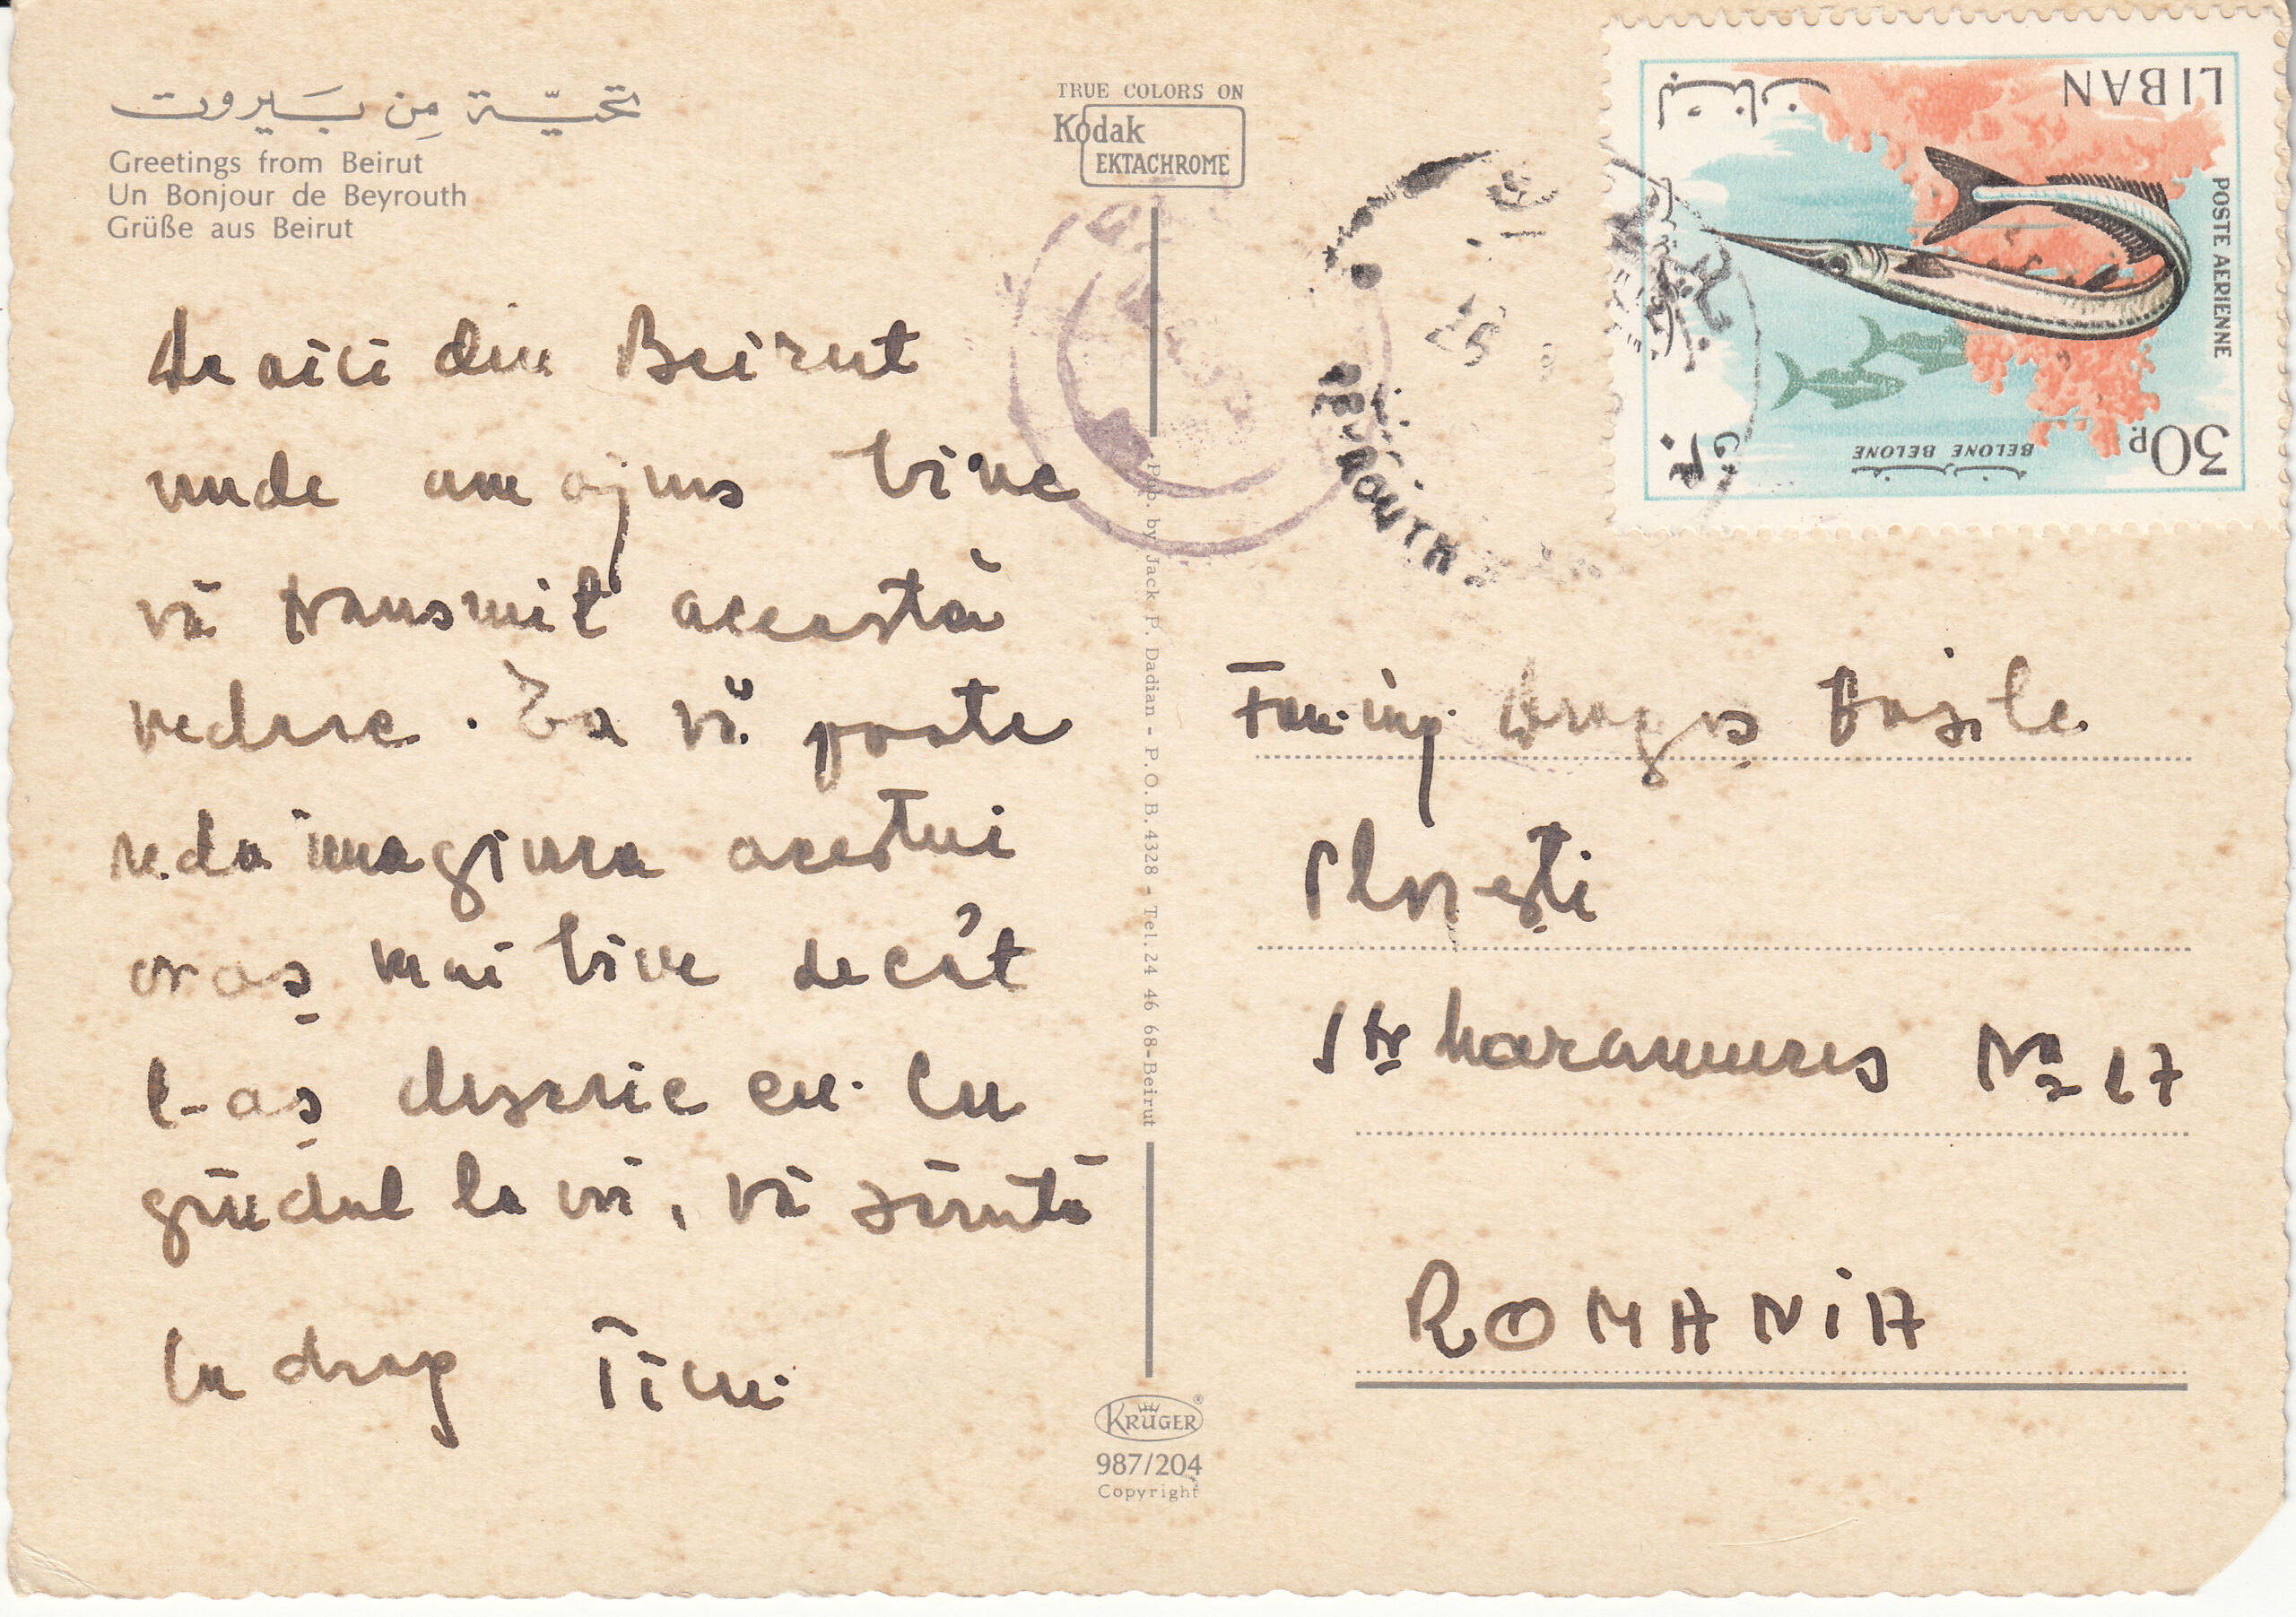 تحيّة مِن بَيروت
Greetings from Beirut
Un Bonjour de Beyrouth
Grüße aus Beirut
De aici din Beirut
unde am ajuns bine
vă transmit această
vedere. Ea vă poate
reda imaginea acestui
oraș mai bine decât
l-aș descrie eu. Cu
gîndul la voi, vă sărută
Cu drag
TRUE COLORS ON
Kodak
EKTACHROME
Pho. by Jack P. Dadian - P.O.B. 4328 - Tel. 24 46 68-Beirut
KRÜGER
987/204
Copyright
LIBAN
لبنان
POSTE AERIENNE
BELONE BELONE
30P.
٣٠ ق
BEYROUTH
Fam. ing. Dragoș Vasile
Ploiești
Str Maramureș No 17
ROMANIA